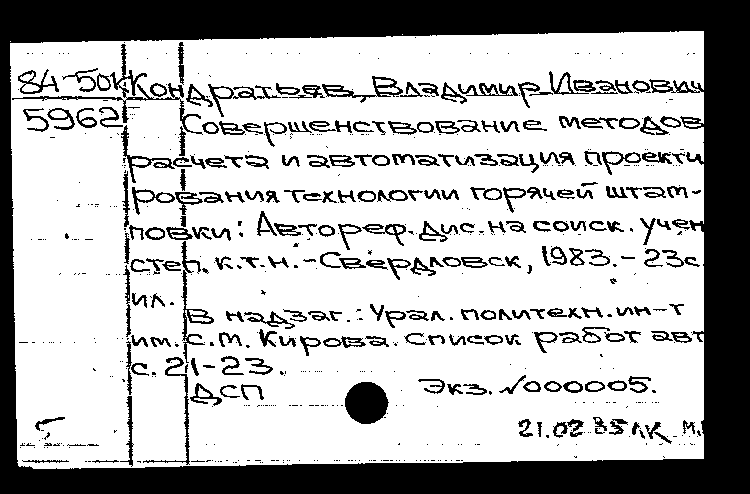 84-50к Кондратьев, Владимир Иванович
5962 Совершенствование методов
расчета и автоматизация проекти
рования технологии горячей штам-
повки: Автореф. дис. на соиск. учен
степ. к.т.н. - Свердловск, 1983. - 23с.
ил.
В надзаг.: Урал. политехн. ин-т
им. С.М. Кирова. Список работ авт
с. 21-23.
ДСП Экз. №000005.
5 21.02 85 ЛК М.